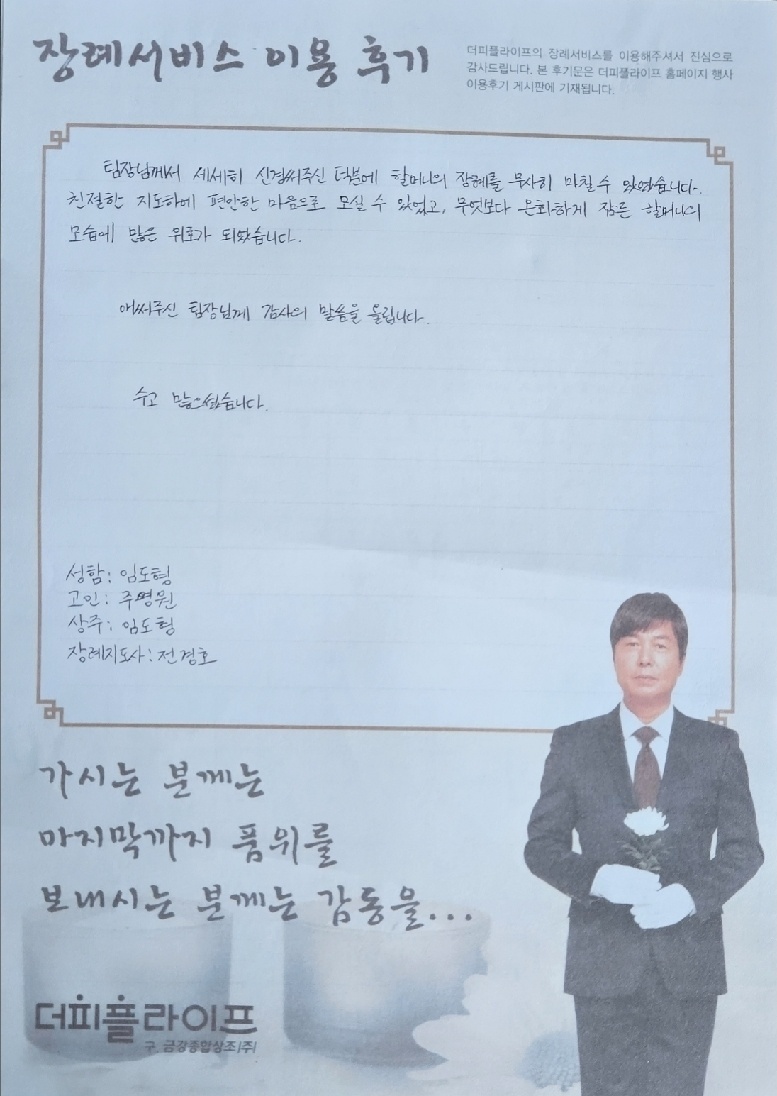 장례서비스 이용 후기
더피플라이프의 장례서비스를 이용해주셔서 진심으로
감사드립니다. 본 후기문은 더피플라이프 홈페이지 행사
이용후기 게시판에 기재됩니다.
팀장님께서 세세히 신경써주신 덕분에 할머니의 장례를 무사히 마칠 수 있었습니다.
친절한 지도하에 편안한 마음으로 모실 수 있었고, 무엇보다 온화하게 잠든 할머니의
모습에 많은 위로가 되었습니다.
애써주신 팀장님께 감사의 말씀을 올립니다.
수고 많으셨습니다.
성함: 임도형
고인: 주영원
상주: 임도형
장례지도사: 전경호
가시는 분께는
마지막까지 품위를
보내시는 분께는 감동을...
더피플라이프
구. 금강종합상조(주)